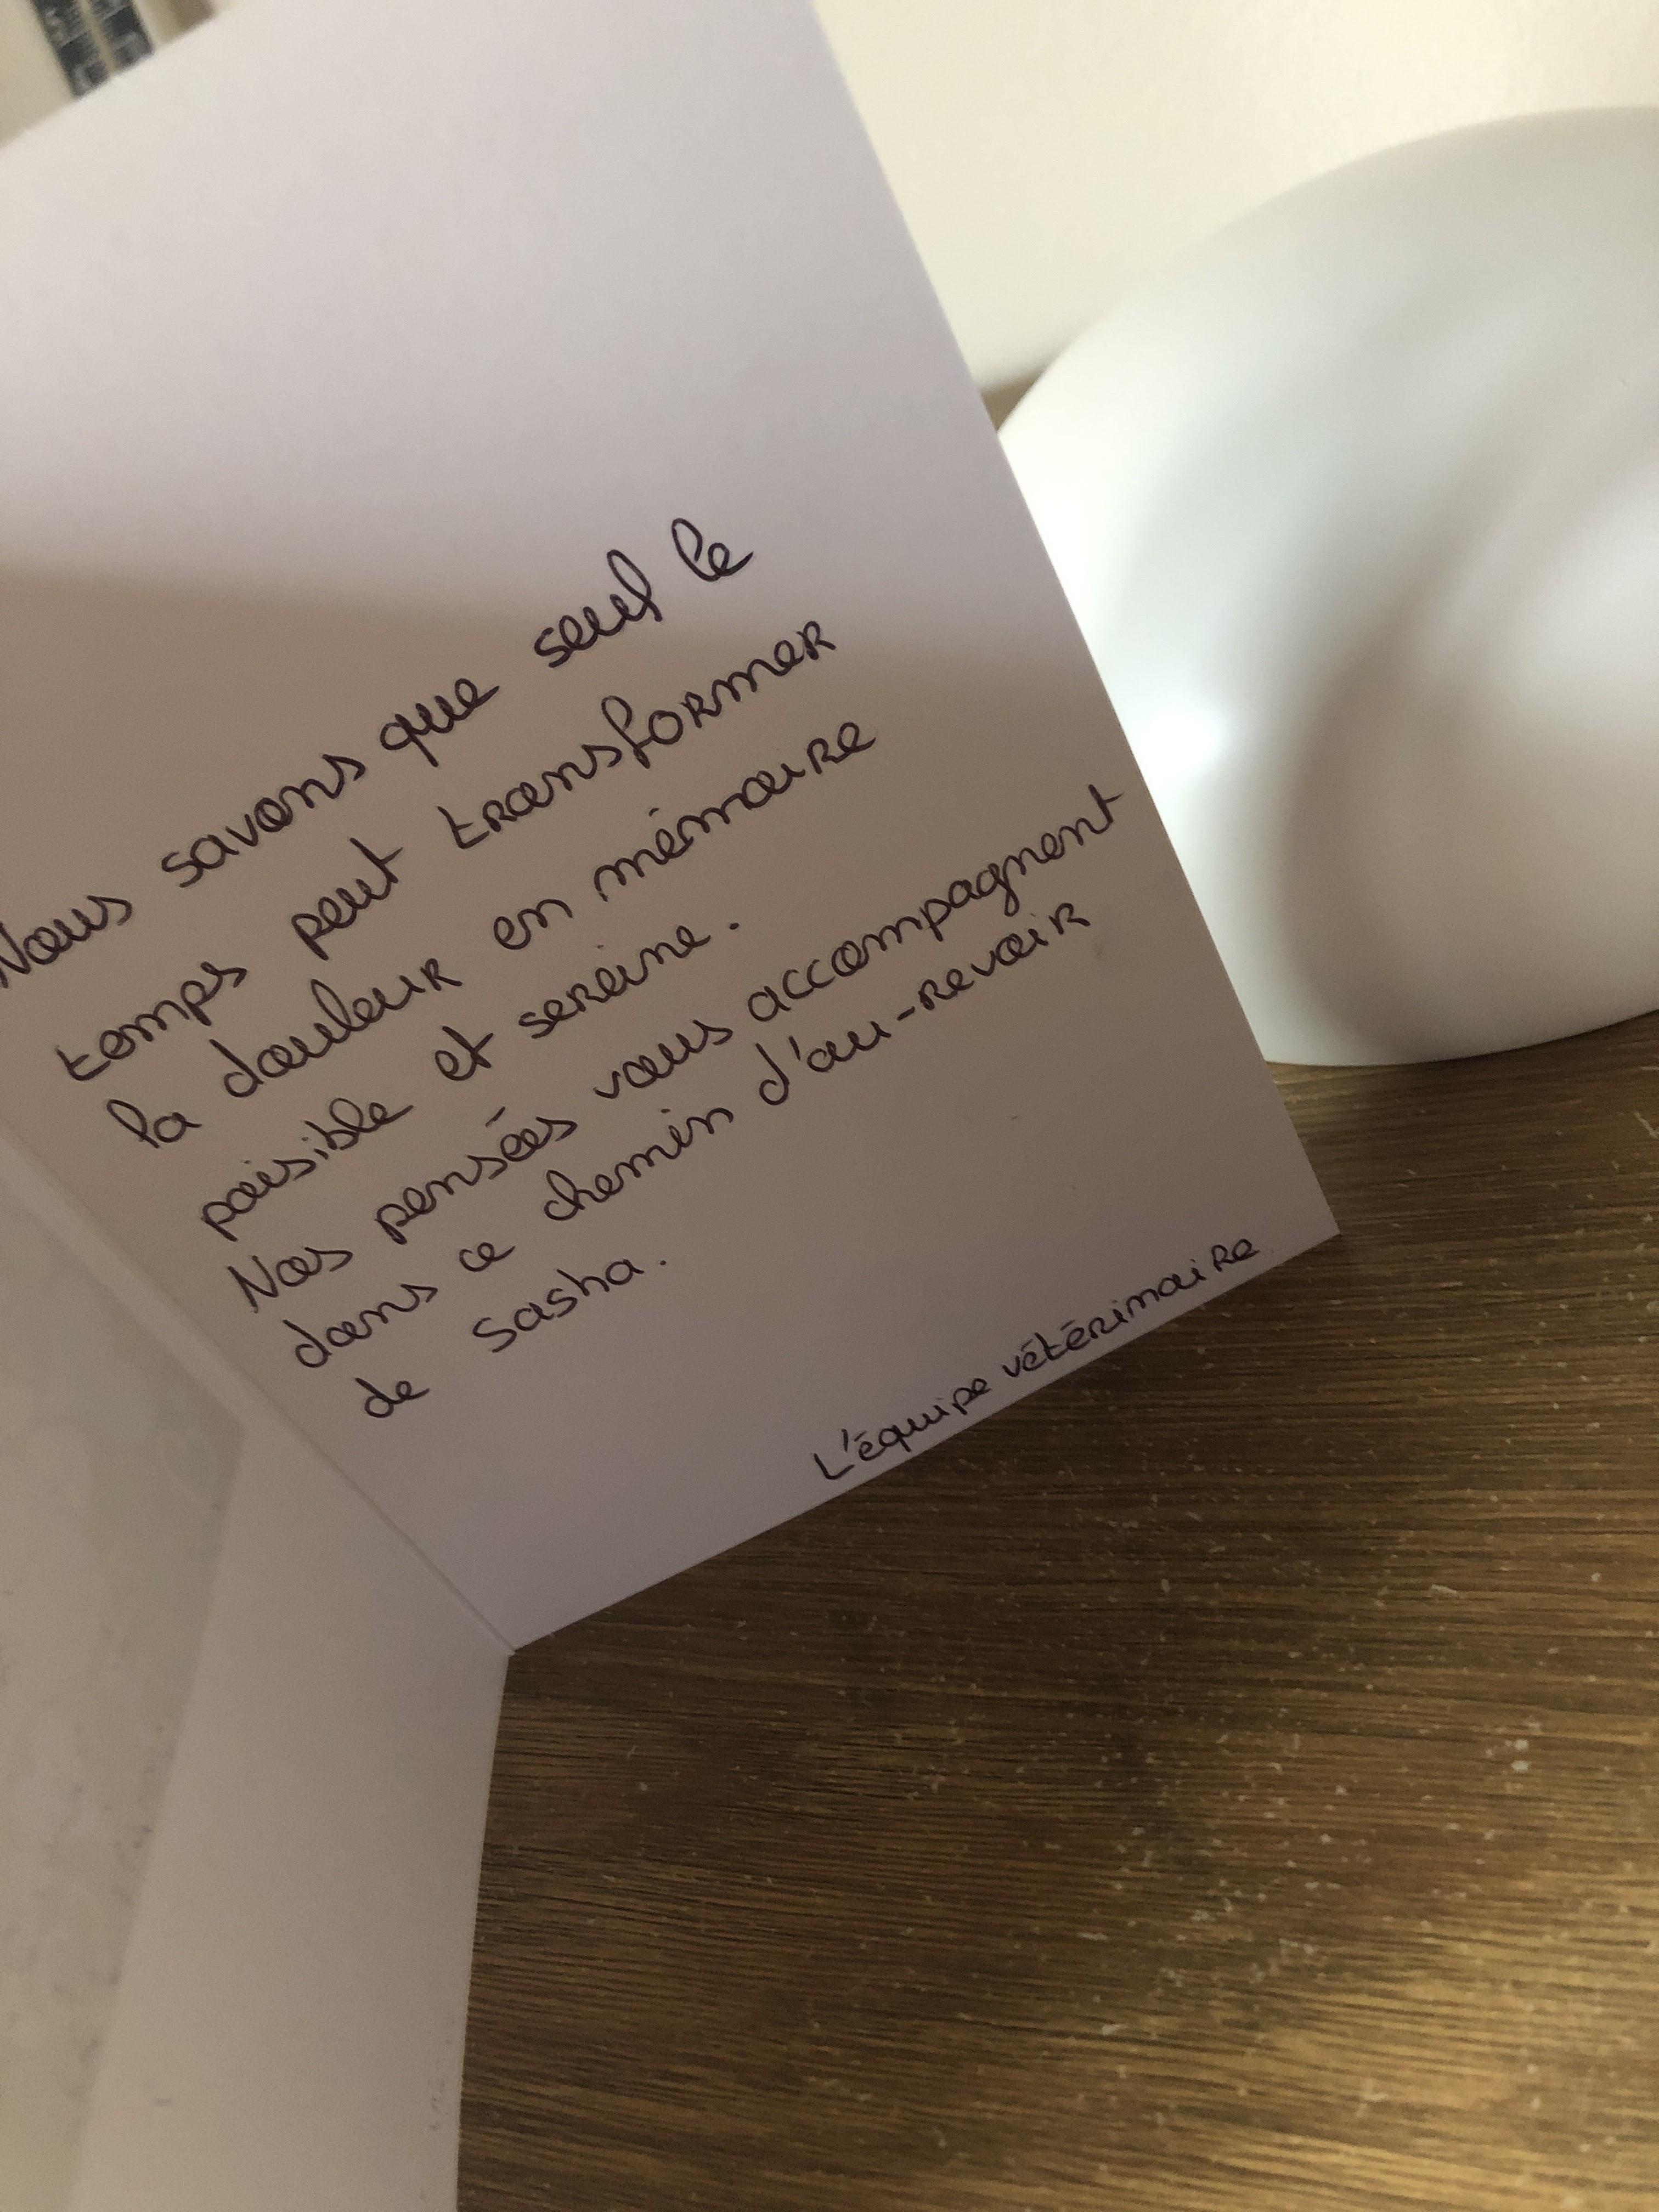 Nous savons que seul le
temps peut transformer
la douleur en mémoire
paisible et sereine.
Nos pensées vous accompagnent
dans ce chemin d'au-revoir
de Sasha.
L'équipe vétérinaire